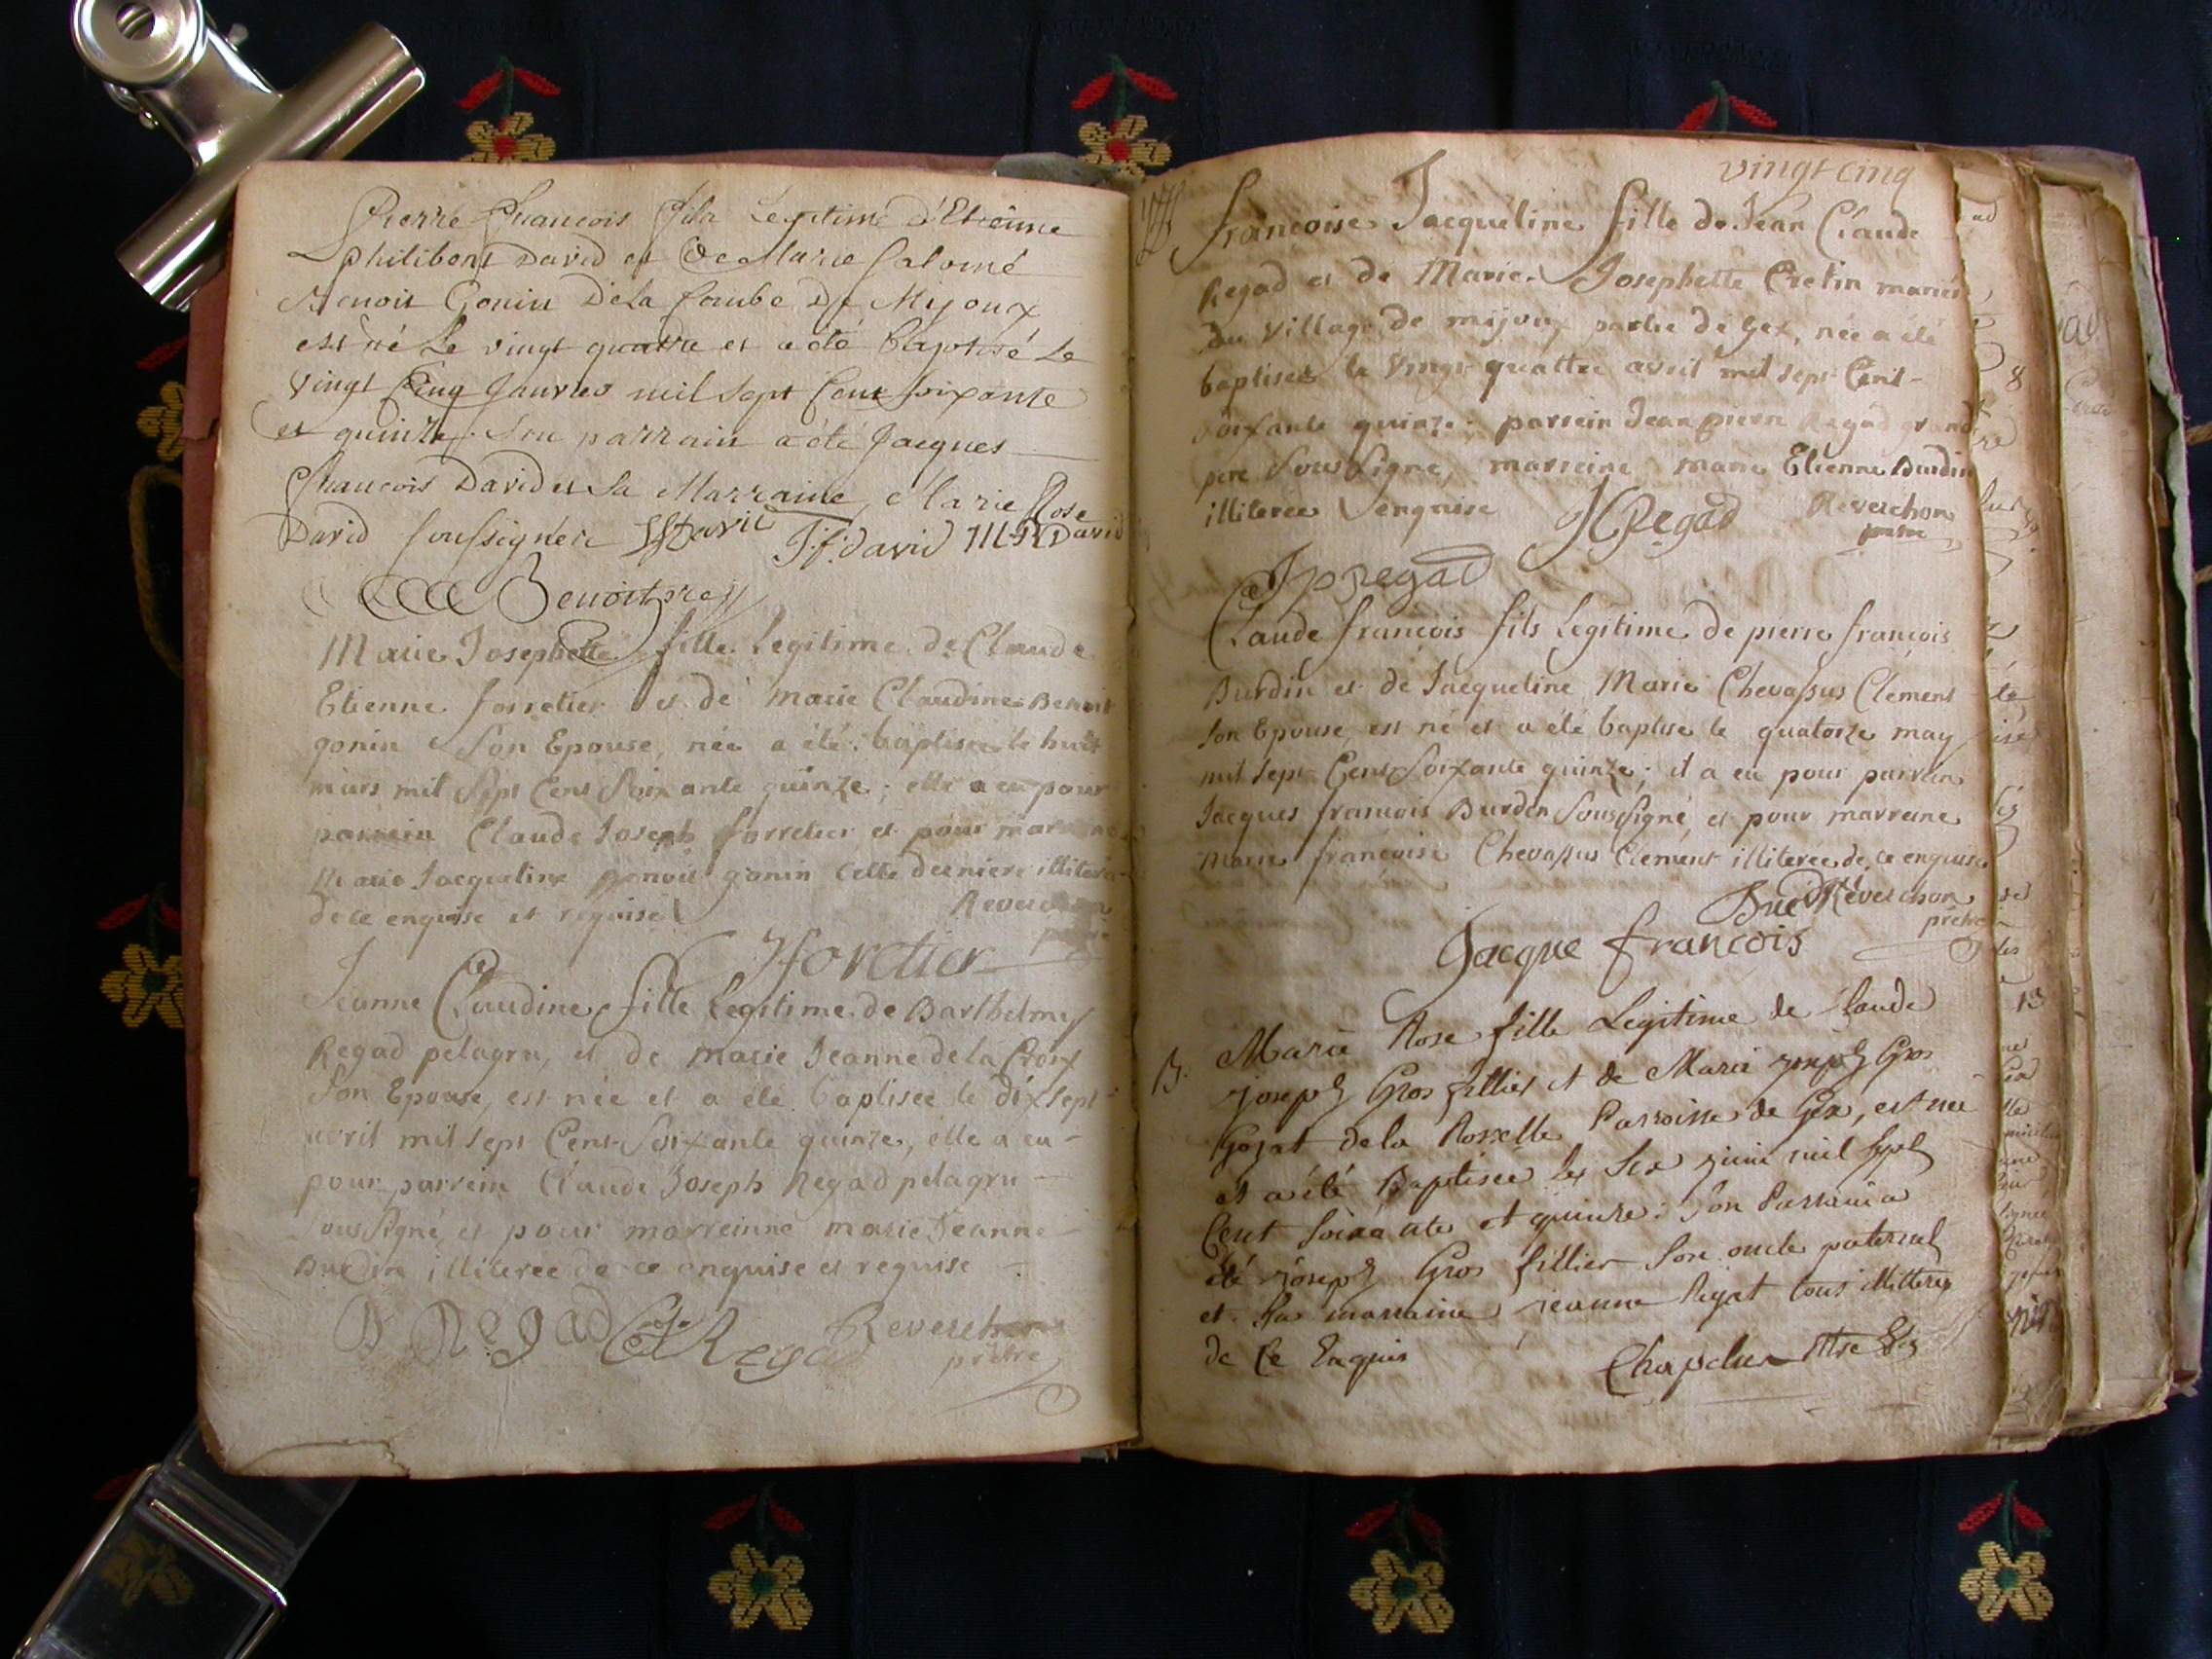 Pierre François fils Legitime d'Etienne
philibert David et de Marie Salomé
Benoit Gonin De la Combe De Mijoux
est né Le vingt quattre et a été Baptisé Le
vingt Cinq Janvier mil sept Cent soixante
et quinze. Son parrain a été Jacques
François David et Sa Marraine, Marie Rose
David soussignés David J.f. david M R David
Benoit
Marie Josephette fille Legitime de Claude
Etienne forretier et de marie Claudine Benoit
gonin Son Epouse, née a été baptisée le huit
mars mil Sept Cent Soixante quinze; elle a eu pour
parrein Claude Joseph forretier et pour marreine
Marie Jacqueline Benoit gonin Cette derniere illiterée
de ce enquise et requise Reverchon
J foretier prêtre
Jeanne Claudine fille Legitime de Barthelmy
Regad pelagru, et de marie Jeanne de la Croix
Son Epouse, est née et a été baptisée le dix sept
avril mil sept Cent Soixante quinze, elle a eu -
pour parrein Claude Joseph Regad pelagru -
Sous Signé, et pour marreinne marie Jeanne
Burdin illiterée de ce enquise et requise -
B Regad C J Regad Reverchon
prêtre
vingt cinq
francoise Jacqueline fille de Jean Claude
Regad et de Marie Josephette Cretin mariés
du Village de mijoux partie de Gex, née a été
baptisée le Vingt quattre avril mil sept Cent -
Soixante quinze; parrein Jean pierre Regad grand
pere Sous Signé, marreine marie Etienne Burdin
illiterée enquise JC Regad Reverchon
prêtre
Jp Regad
Claude françois fils Legitime de pierre françois
Burdin et de Jacqueline Marie Chevassus Clement
Son Epouse, est né et a été baptisé le quatorze may
mil sept Cent Soixante quinze; il a eu pour parrein
Jacques françois Burdin Sous Signé, et pour marreine
Marie françoise Chevassus Clement illiterée de ce enquise
Reverchon
prêtre
Jacque francois
B. Marie Rose fille Legitime de Claude
joseph Gros fillier et de Marie joseph Gros
Gojat de la Parroisse de Gex, est née
et a été Baptisée le Six juin mil Sept
Cent soixante et quinze: Son Parrain a
été joseph Gros fillier Son oncle paternel
et Sa marraine jeanne tous illitteres
de Ce Enquis